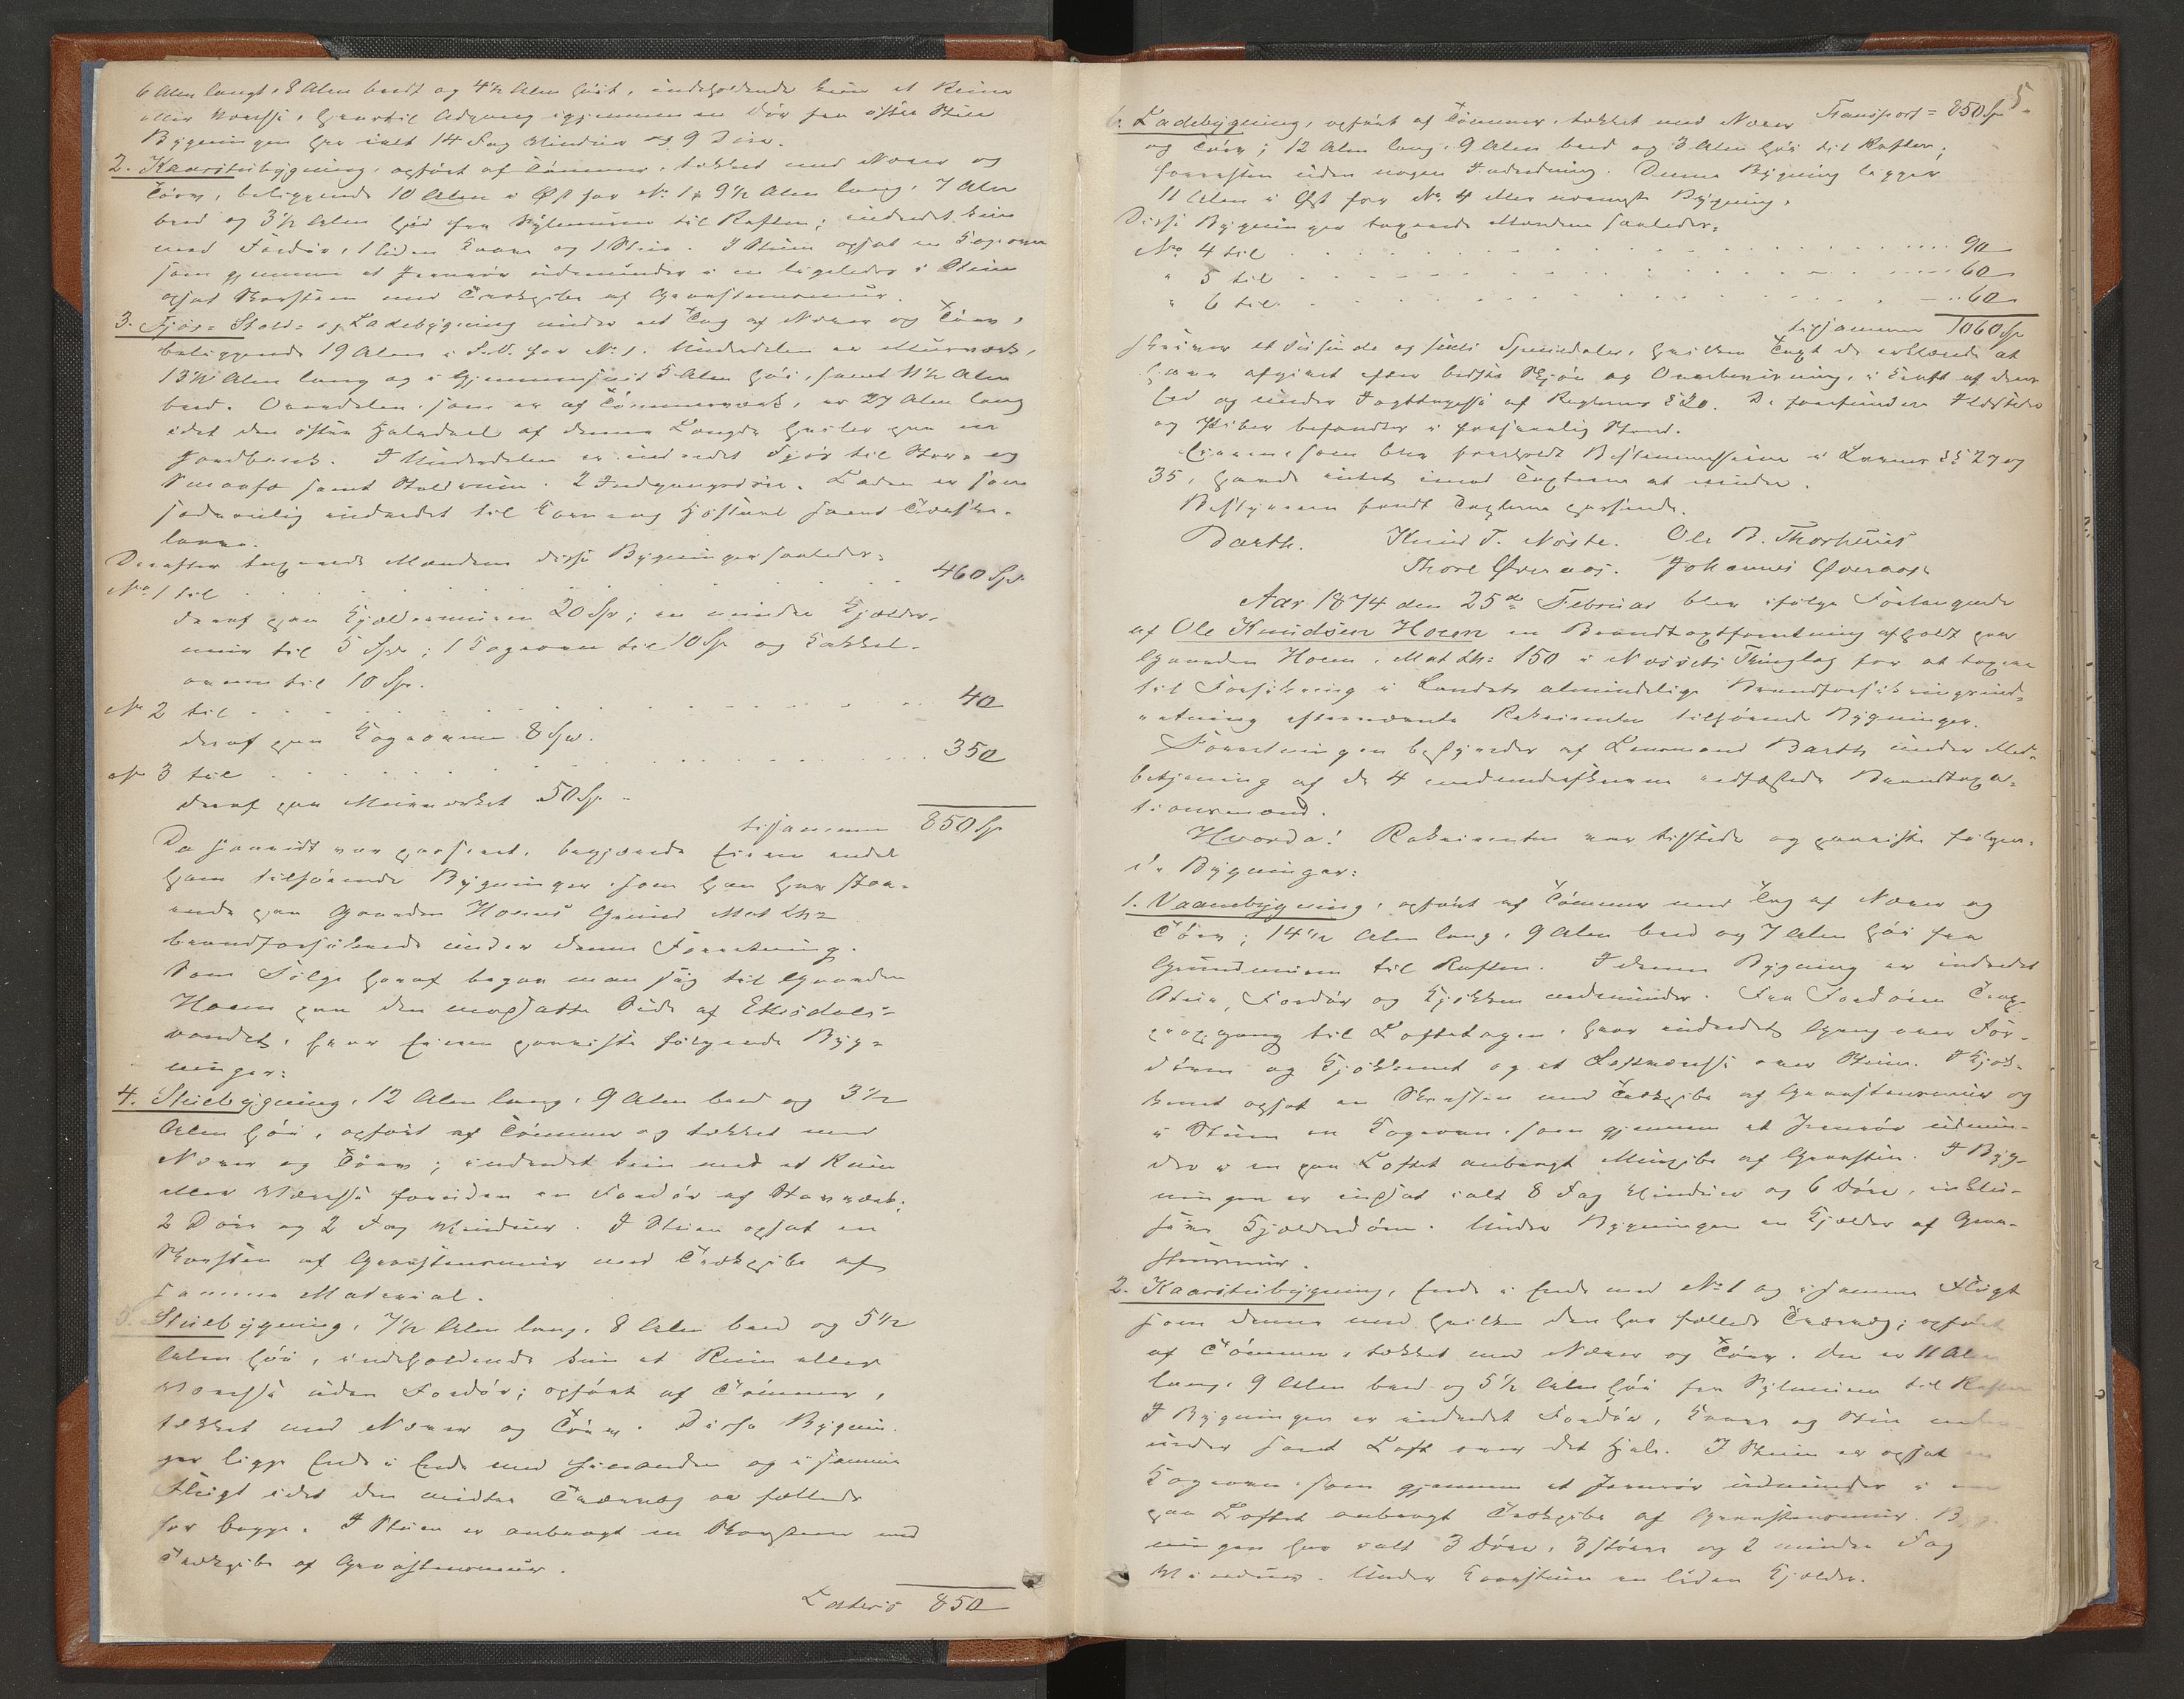 6 Alen langt, 8 Alen bredt og 4½ Alen høit, indeholdende kun et Rum
eller Værelse, hvortil Adgang igjennem en Dør fra østre Stue
Bygningen har ialt 14 Fag Vinduer og 9 Døre.
2. Kaarstubygning, opført af Tømmer, tækket med Næver og
Törv, beliggende 10 Alen i Øst for No 1, 9½ Alen lang, 7 Alen
bred og 3½ Alen høi fra Sylemuren til Raften; indredet kun
med Fordör, 1 liden Kove og 1 Stue. I Stuen opsat en Kogeovn
som gjennem et Jernrör udmunder i en ligeledes i Stuen
opsat Skorsten med Trækpibe af Graastensmuur.
3. Fjös- Stald- og Ladebygning under et Tag af Næver og Törv,
beliggende 19 Alen i S.V. for No 1. Underdelen er Muurværk,
13½ Alen lang og i Gjennemsnit 5 Alen høi, samt 11½ Alen
bred. Overdelen, som er af Tømmerværk, er 27 Alen lang
idet den østre Halvdeel af denne Længde hviler paa en
Jordbank. I Underdelen er indredet Fjös til Stor- og
Smaafæ samt Staldrum. 2 Indgangsdøre. Laden er som
sædvanlig indredet til Korn og Høstaal samt Træske-
laave.
Derefter taxerede Mændene disse Bygninger saaledes:
No 1 til . . . 460 Spd.
deraf paa Kjældermuren 20 Spd; en mindre Kjælder-
muur til 5 Spd; 1 Kogeovn til 10 Sp og Kakkel-
ovnen til 10 Spd.
No 2 til . . . 40
deraf paa Kogeovnen 8 Spd.
No 3 til . . . 350
deraf paa Muurværket 50 Sp.
tilsammen 850 Sp
Da saavidt var passeret, begjærede Eieren endel
ham tilhørende Bygninger, som han har staa-
ende paa Gaarden Hoems Grund Mat Lb=
brandforsikrede under denne Forretning.
Som Følge heraf begav man sig til Gaarden
Hoem paa den modsatte Side af Eikisdals-
vandet, hvor Eieren paaviste følgende Byg-
ninger:
4. Stuebygning, 12 Alen lang, 9 Alen bred og 3½
Alen høi, opført af Tømmer og tækket med
Næver og Törv; indredet kun med et Rum
eller Værelse foruden en Fordör af Stavværk;
2 Döre og 2 Fag Vinduer. I Stuen opsat en
Skorsten af Graastensmuur med Trækpibe af
samme Material.
5. Stuebygning, 7½ Alen lang, 8 Alen bred og 5½
Alen høi, indeholdende kun et Rum eller
Værelse uden Fordör; opført af Tømmer,
tækket med Næver og Törv. Disse Bygnin-
ger ligge Ende i Ende med hinanden og i samme
Flugt idet den midtre Trævæg er fælleds
for begge. I Stuen er anbragt en Skorsteen med
Trækpibe af Graastensmuur.
Lateris 850
5.
6. Ladebygning, opført af Tømmer, tækket med Næver Transport = 850 Sp
og Törv; 12 Alen lang, 9 Alen bred og 3 Alen høi til Raften;
forresten uden nogen Indredning. Denne Bygning ligger
11 Alen i Øst for No 4 eller nævnte Bygning.
Disse Bygninger taxerede Mændene saaledes:
No 4 til . . . 90
" 5 til . . . 60
" 6 til . . . 60
tilsammen 1060 Sp
skriver et Tusinde og sexti Speciedaler, hvilken Taxt de erklærede at
have afgivet efter bedste Skjön og Overbeviisning, i Kraft af deres
Eed og under Iagttagelse af Reglerne § 20. De forefundne Ildsteder
og Piber befandtes i forsvarlig Stand.
Eieren som blev foreholdt Bestemmelserne i Lovens §§ 27 og
35, havde intet imod Taxterne at erindre.
Bestyreren fandt Taxterne passende.
Barth. Knud T. Nöste. Ole B. Thorhuus
Thore Øveraas. Johannes Øveraas.
Aar 1874 den 25de Februar blev ifølge Forlangende
af Ole Knudsen Hoem en Brandtaxtforretning afholdt paa
Gaarden Hoem, Mat Lb: 150 i Næssets Thinglag for at taxere
til Forsikring i Landets almindelige Brandforsikringsind-
retning efternævnte Rekvirenten tilhørende Bygninger.
Forretningen bestyredes af Lensmand Barth under Med-
betjening af de 4 medunderskrevne edfæstede Brandtaxa-
tionsmænd.
Hvorda! Rekvirenten var tilstede og paaviste følgen-
de Bygninger:
1. Vaanebygning, opført af Tømmer med Tag af Næver og
Törv; 14½ Alen lang, 9 Alen bred og 7 Alen høi fra
Grundmuren til Raften. I denne Bygning er indredet
Stue, Fordör og Kjökken nedenunder. Fra Fordören Trap-
peopgang til Loftsetagen, hvor indredet Gang over For-
dören og Kjökkenet og et Loftværelse over Stuen. I Kjök-
kenet opsat en Skorsten med Trækpibe af Graastensmuur og
i Stuen en Kogeovn, som gjennem et Jernrör udmun-
der i en paa Loftet anbragt Muurpibe af Graasten. I Byg-
ningen er indsat ialt 8 Fag Vinduer og 6 Döre, inklu-
sive Kjælderdören. Under Bygningen en Kjælder af Graa-
stensmuur.
2. Kaarstubygning, Ende i Ende med No 1 og i samme Flugt
som denne med hvilken den har fælleds Trævæg; opført
af Tømmer, tækket med Næver og Törv. Den er 11 Alen
lang, 9 Alen bred og 5½ Alen høi fra Sylmuren til Raften
I Bygningen er indredet Fordör, Kove og Stue neden
under samt Loft over det Hele. I Stuen er opsat en
Kogeovn, som gjennem et Jernrör udmunder i en
paa Loftet anbragt Trækpibe af Graastensmuur. Byg-
ningen har ialt 3 Döre, 3 större og 2 mindre Fag
Vinduer. Under Kaarstuen en liden Kjælder.